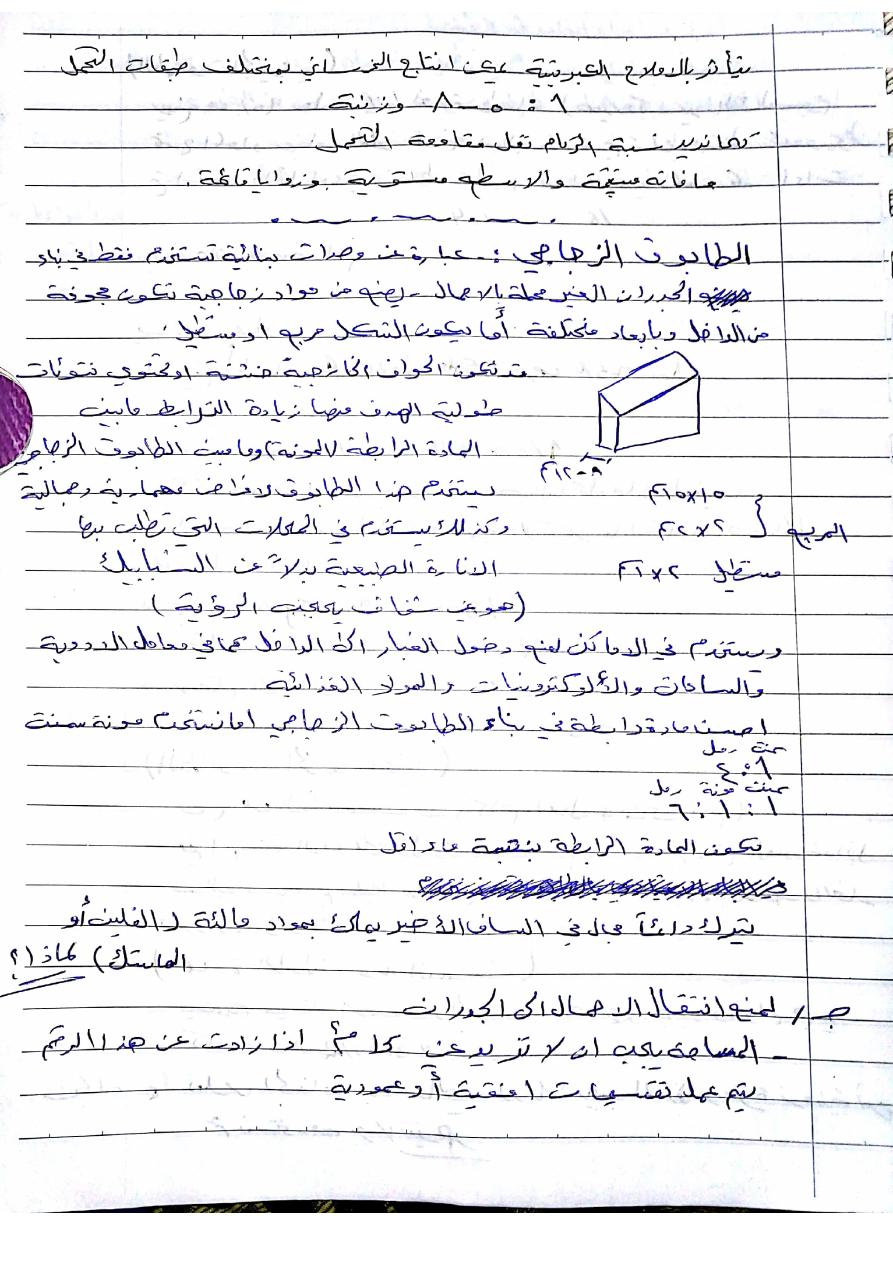 يتأثر بالاملاح الكبريتية يمكن انتاج الخرساني بمختلف طبقات التحمل
١ : ٥ - ٨ وزنية
كما تزيد نسبة الركام تقل مقاومة التحمل
حافاته مستقيمة والاسطح مستوية وزوايا قائمة.
الطابوق الزجاجي :- عبارة عن وحدات بنائية تستخدم فقط في بناء
الجدران الغير محملة بالاحمال - يصنع من مواد زجاجية تكون مجوفة
من الداخل وبأبعاد مختلفة أما يكون الشكل مربع او مستطيل.
قد تكون الحواف الخارجية خشنة او تحتوي نتوئات
طولية الهدف منها زيادة الترابط مابين
المادة الرابطة (المونة) وما بين الطابوق الزجاجي
٨-١٢سم
يستخدم هذا الطابوق لاغراض معمارية وجمالية
وكذلك يستخدم في المحلات التي تطلب بها
الانارة الطبيعية بدلاً عن الشبابيك
المربع
١٥x١٥سم
٢x٢سم
مستطيل ٢x١سم
(هو غير شفاف يحجب الرؤية)
ويستخدم في الاماكن لمنع دخول الغبار الى الداخل كما في معامل الادوية
والساعات والألوكترونيات والمواد الغذائية
احسن مادة رابطة في بناء الطابوق الزجاجي اما نستخدم مونة سمنت
سمنت رمل
١ : ٤
سمنت مونة رمل
١ : ١ : ٦
تكون المادة الرابطة بنسبة ماء اقل
يترك دائماً مجال في الساف الأخير يملئ بمواد مالئة (الفلين أو
الماستك) لماذا؟
جـ/ لمنع انتقال الاحمال الى الجدران
- المساحة يجب ان لا تزيد عن كل م٢ اذا زادت عن هذا الرقم
يتم عمل تقسيمات افقية أو عمودية